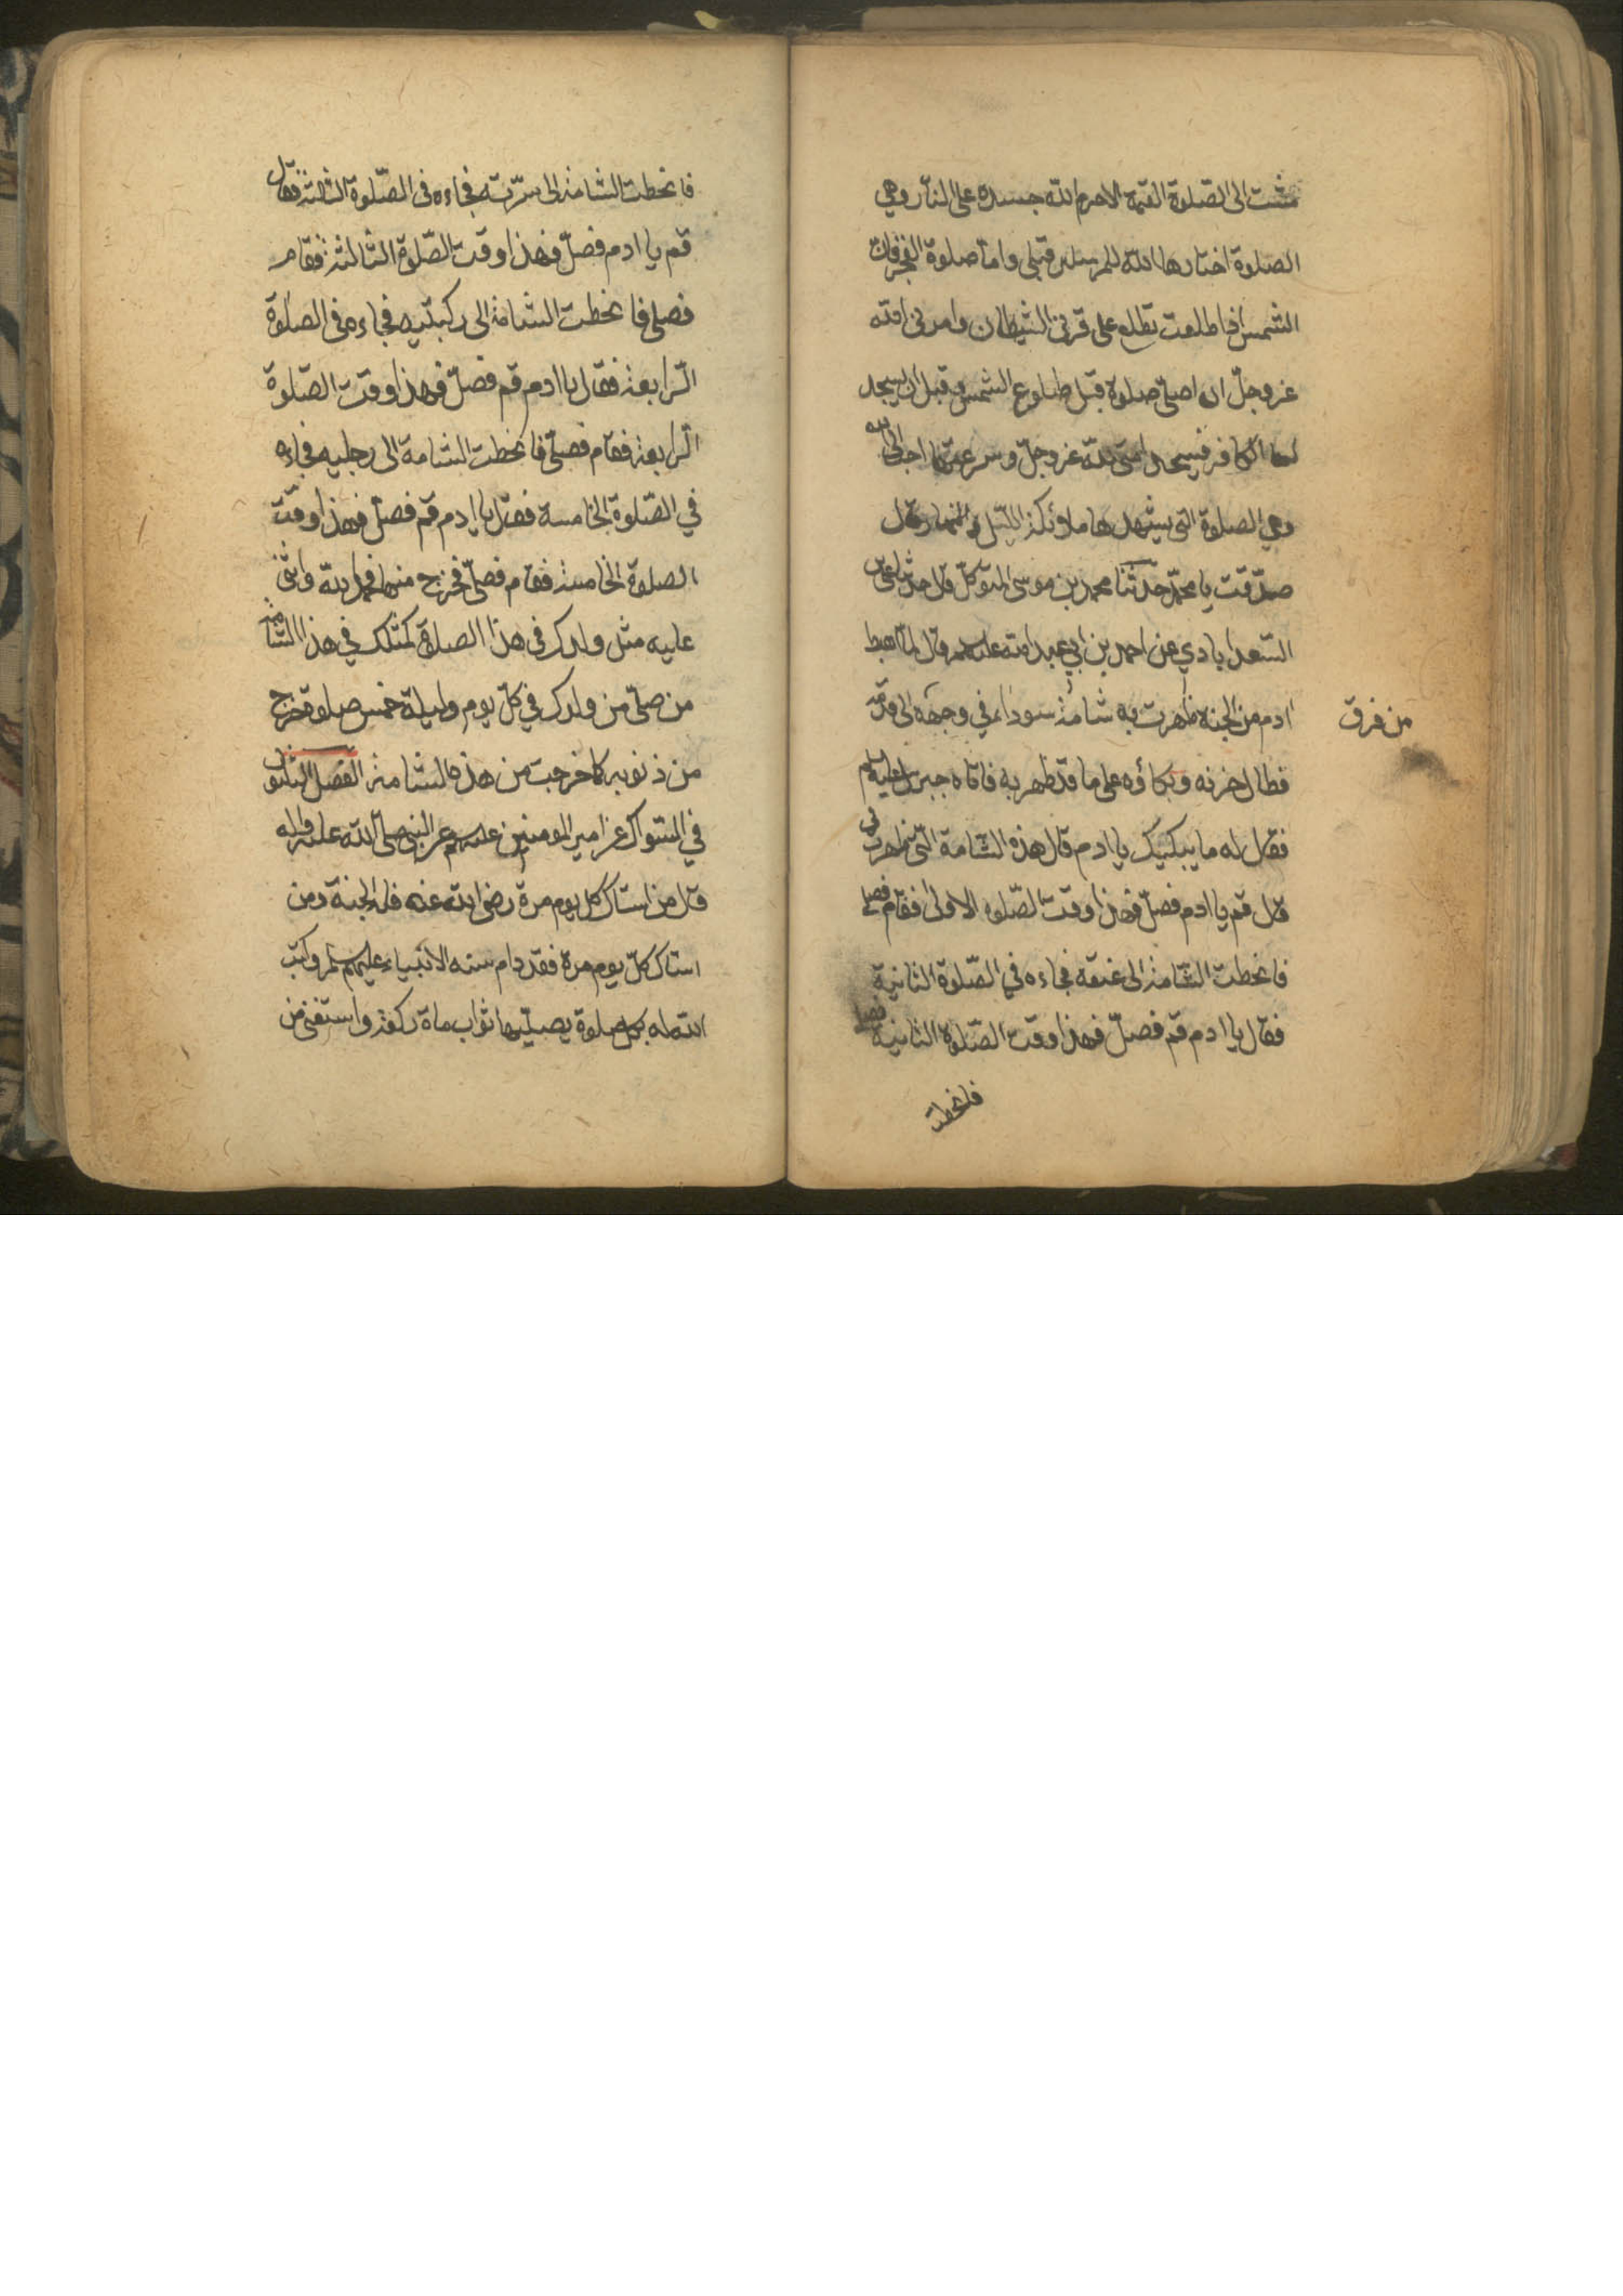 مشت الى الصّلوة العتمة الا حرم الله جسده على النّار وهي
الصلوة اختارها الله للمرسلين قبلى وامّا صلوة الفجر فان
الشمس اذا طلعت تطلع على قرنى الشيطان وامرنى الله
عزوجلّ ان اصلى صلوة قبل طلوع الشمس وقبل ان يسجد
لها الكافر فيسجد امتى لله عزوجلّ وسرعتها احب الى الله
وهي الصلوة التى يشهدها ملائكة الليل والنهار قال
صدّقت يا محمّد حدّثنا محمد بن موسى المتوكّل قال حدثنا على بن
السّعد ابادي عن احمد بن ابي عبد الله عليه السلم قال لمّا هبط
ادم من الجنة ظهرت به شامة سوداء في وجهه الى قدمه
من فرق
فطال حزنه وبكاؤه على ما قد ظهر به فاتاه جبرئيل عليه السلم
فقال له ما يبكيك يا ادم قال هذه الشّامة الّتى ظهرت بى
قال قم يا ادم فصلّ فهذا وقت الصّلوة الاولى فقام فصلى
فانحطت الشّامة الى عنقه فجاءه في الصّلوة الثانية
فقال يا ادم قم فصلّ فهذا وقت الصّلوة الثانية فصلى
فانحطت
فانحطت الشامة الى سرّته فجاءه فى الصّلوة الثالثة فقال
قم يا ادم فصلّ فهذا وقت الصّلوة الثالثة فقام
فصلى فانحطت الشامة الى ركبتيه فجاءه فى الصلوة
الرّابعة فقال يا ادم قم فصلّ فهذا وقت الصّلوة
الرّابعة فقام فصلّى فانحطت الشامة الى رجليه فجاءه
في الصّلوة الخامسة فقال يا ادم قم فصلّ فهذا وقت
الصلوة الخامسة فقام فصلّى فخرج منها فحمد الله واثنى
عليه مثل ولدك فى هذا الصلوة كمثلك في هذا الشّامة
من صلّى من ولدك في كلّ يوم وليلة خمس صلوة خرج
من ذنوبه كما خرجت من هذه الشامة الفصل الثلثون
في السّواك عن امير المومنين عليه السلم عن النبى صلّى الله عليه واله
قال من استاك كل يوم مرة رضى الله عنه فله الجنة ومن
استاك كلّ يوم مرة فقد دام سنه الانبياء عليهم السلم وكتب
الله له بكل صلوة يصلّيها ثواب ماة ركعة واستغنى من